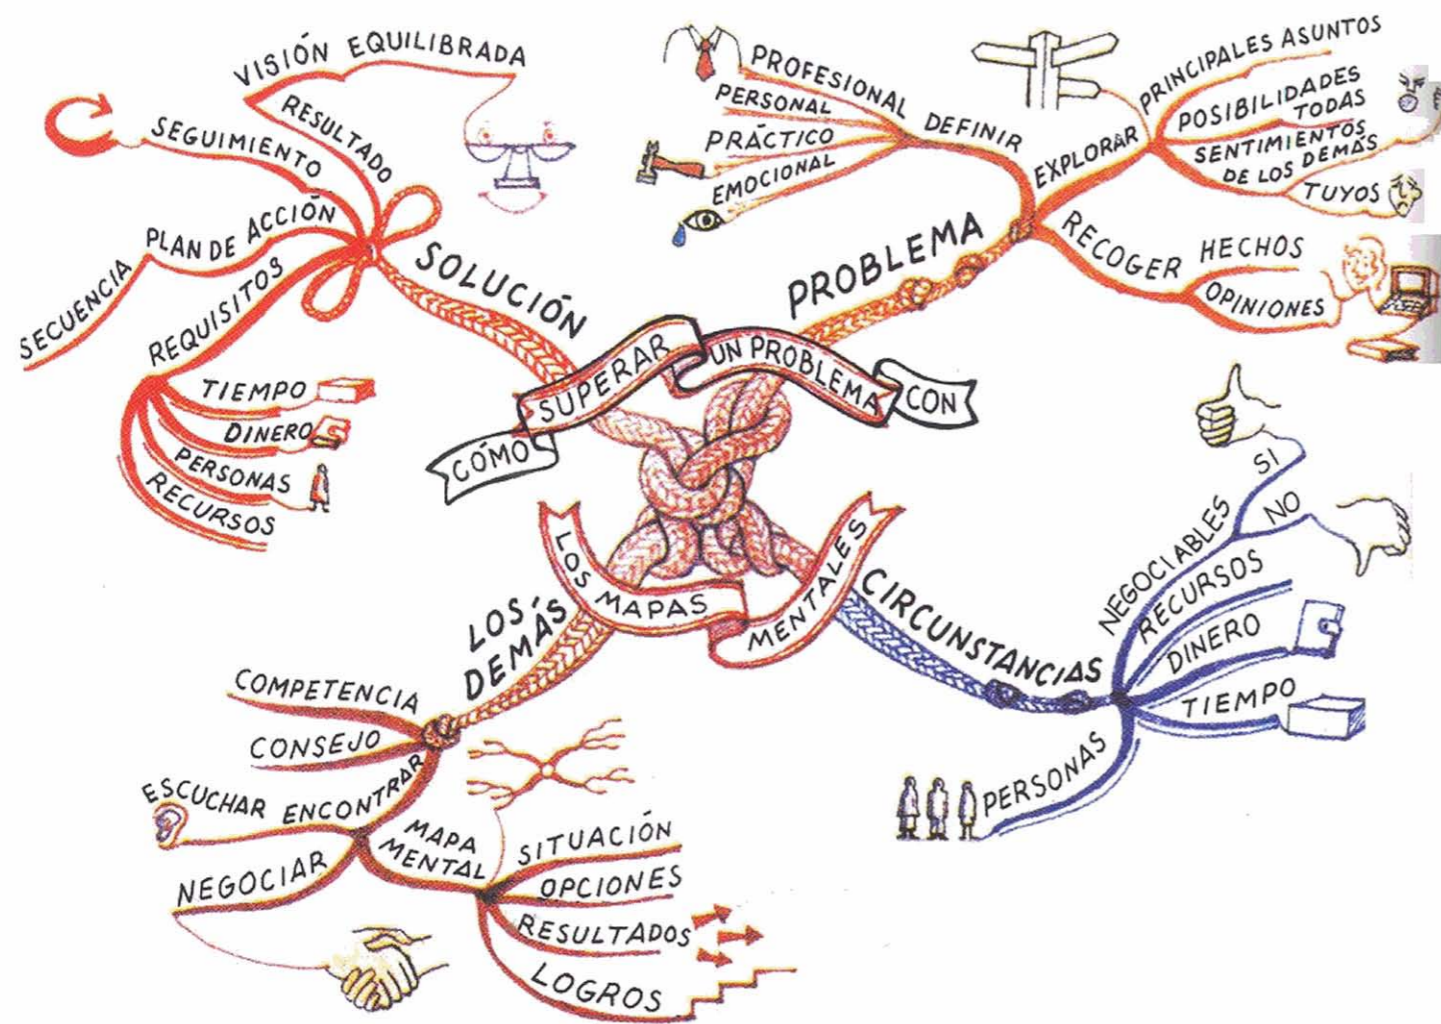 CÓMO
SUPERAR
UN PROBLEMA
CON
LOS
MAPAS
MENTALES
PROBLEMA
DEFINIR
PROFESIONAL
PERSONAL
PRÁCTICO
EMOCIONAL
EXPLORAR
PRINCIPALES ASUNTOS
POSIBILIDADES
TODAS
SENTIMIENTOS
DE LOS DEMÁS
TUYOS
RECOGER
HECHOS
OPINIONES
CIRCUNSTANCIAS
NEGOCIABLES
SI
NO
RECURSOS
DINERO
TIEMPO
PERSONAS
LOS
DEMÁS
COMPETENCIA
CONSEJO
ENCONTRAR
ESCUCHAR
NEGOCIAR
MAPA
MENTAL
SITUACIÓN
OPCIONES
RESULTADOS
LOGROS
SOLUCIÓN
REQUISITOS
TIEMPO
DINERO
PERSONAS
RECURSOS
PLAN DE ACCIÓN
SECUENCIA
SEGUIMIENTO
RESULTADO
VISIÓN EQUILIBRADA